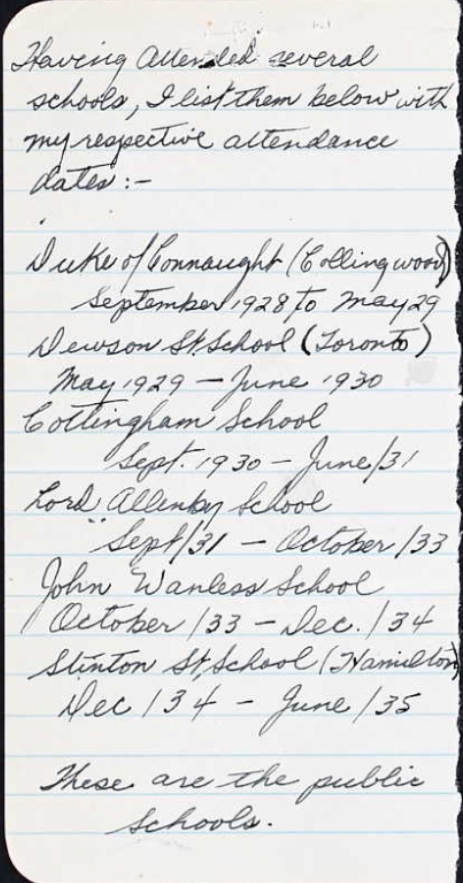 Having Attended several
schools, I list them below with
my respective attendance
dates :-
Duke of Connaught (Collingwood)
September 1928 to May 29
Dewson St. School (Toronto)
May 1929 - June 1930
Cottingham School
Sept. 1930 - June/31
Lord Allenby School
" Sept/31 - October /33
John Wanless School
October /33 - Dec. /34
Stinton St. School (Hamilton)
Dec /34 - June /35
These are the public
schools.